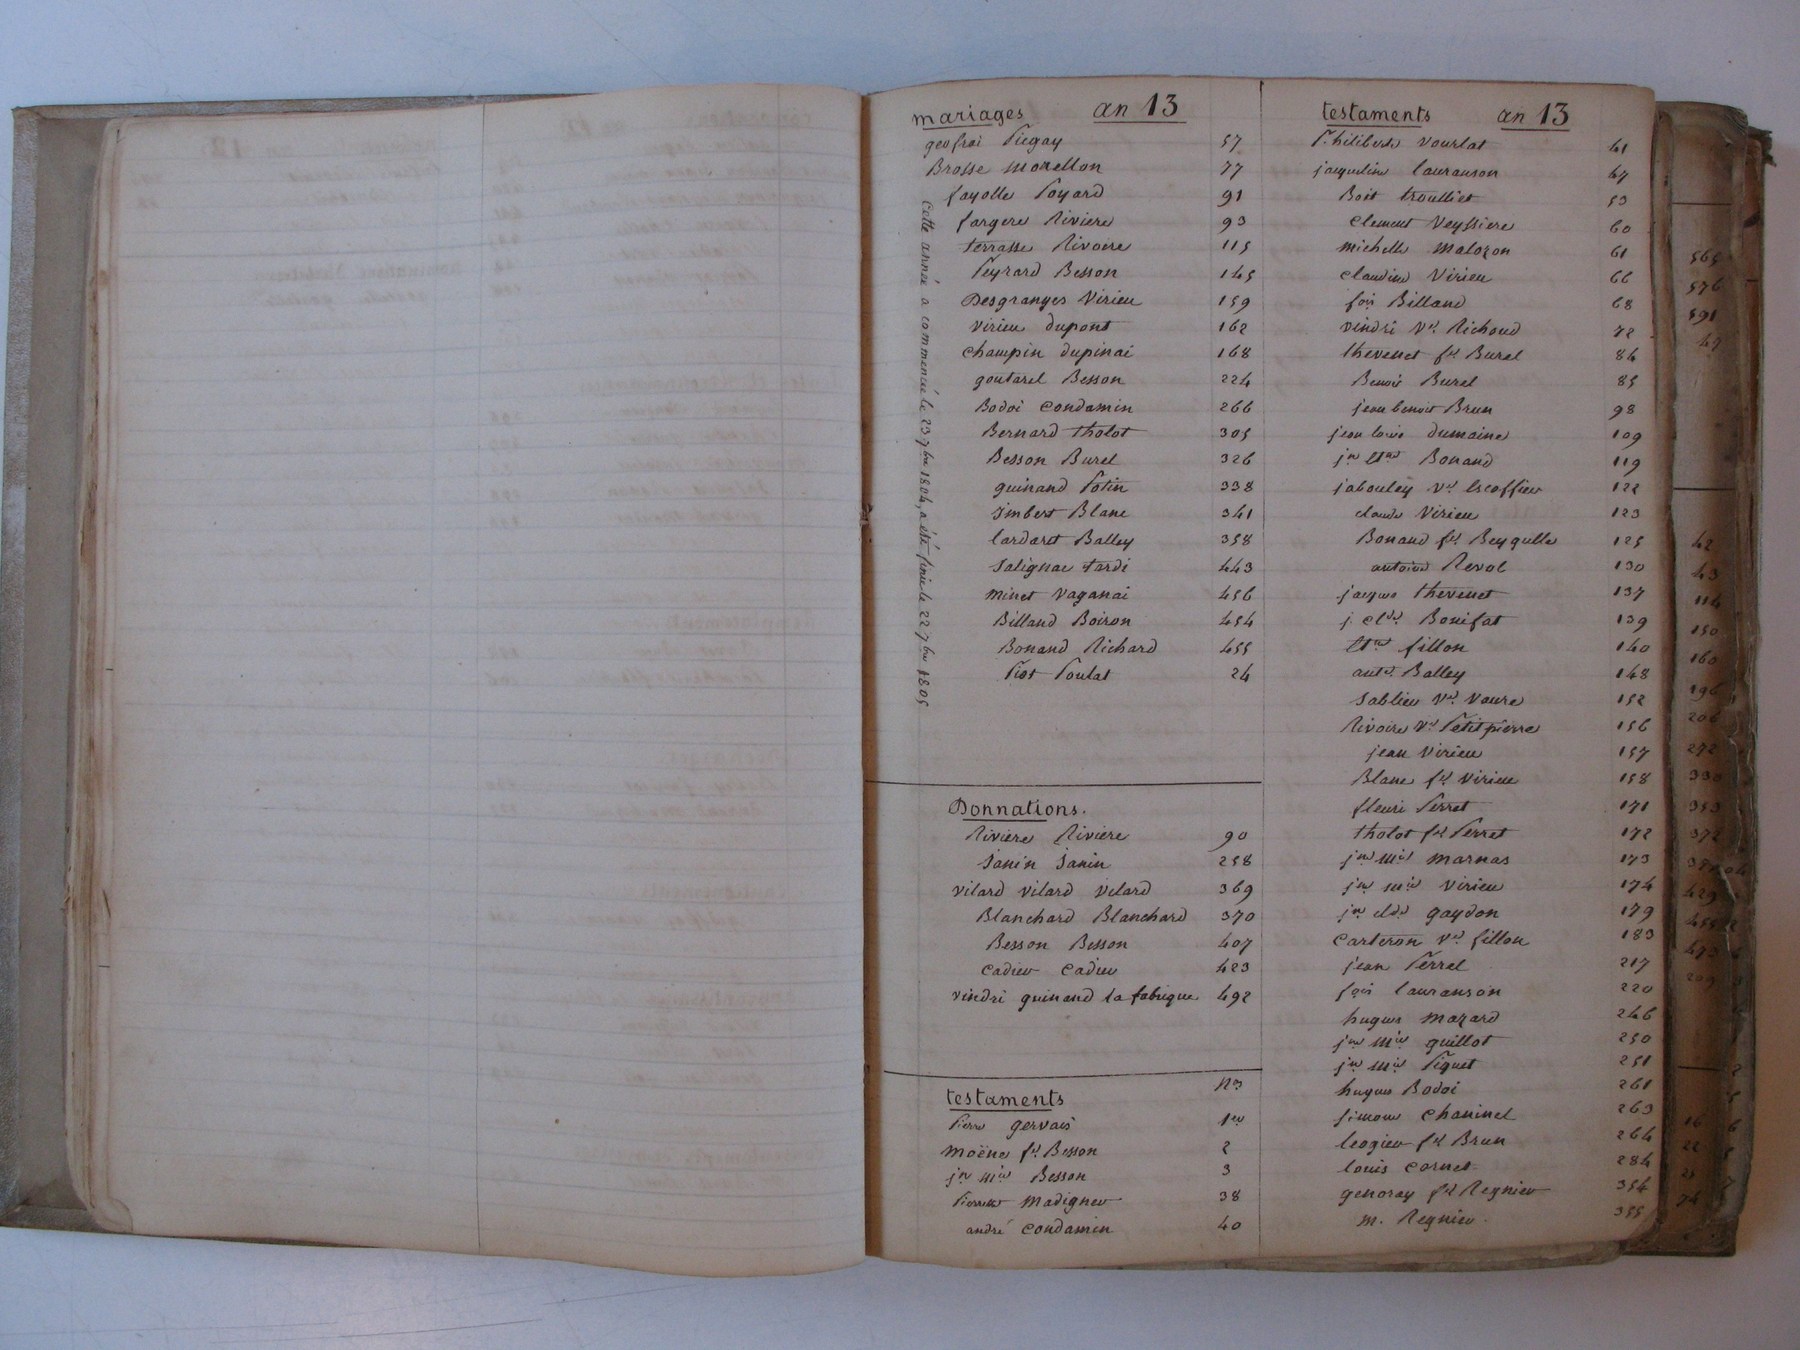 mariages an 13
geofrai Piegay 57
Brosse Morellon 77
fayolle Poyard 91
fargere Riviere 93
terrasse Rivoire 115
Peyrard Besson 145
Desgranges Virieu 159
Virieu dupont 162
champin dupinai 168
goutarel Besson 224
Bodoi condamin 266
Bernard tholot 305
Besson Burel 326
guinand Potin 338
Imbert Blanc 341
lardaret Balley 358
Salignac tardi 443
minet vaganai 456
Billand Boiron 454
Bonand Richard 455
Piot Poulat 24
cette année a commencé le 23 7bre 1804, a été finie le 22 7bre 1805
Donnations.
Riviere Riviere 90
Janin Janin 258
vilard vilard vilard 369
Blanchard Blanchard 370
Besson Besson 407
cadier cadier 423
vindri guinand la fabrique 492
testaments nos
Pierre gervais 1er
moëne fe Besson 2
jne mie Besson 3
Pierrette madignier 38
andré condamin 40
testaments an 13
Philiberte vourlat 41
jacqueline lauranson 47
Boit troulliet 53
clement Veyssiere 60
michelle malozon 61
claudine Virieu 66
fois Billand 68
vindri ve Richoud 72
thevenet fe Burel 84
Benoit Burel 85
jean benoit Brun 98
jean louis dumaine 109
jn etne Bonand 119
jabouley ve escoffier 122
claude Virieu 123
Bonand fe Beyqulle 125
antoine Revol 130
jacques thevenet 137
j. clde Bonifat 139
etne fillon 140
ante Balley 148
Sablieu ve voure 152
Rivoire ve Petitpierre 156
jean Virieu 157
Blanc fe virieu 158
fleuri Perret 171
tholot fe Perret 172
jne mie marnas 173
jne mie virieu 174
jn clde gaydon 179
carteron ve fillon 183
jean Perrel 217
fois lauranson 220
hugues mazard 246
jne mie guillot 250
jne mie Piquet 251
hugues Bodoi 261
simone chaninel 263
leogier fe Brun 264
louis cornet 284
genoray fe Regnier 354
m. Regnier. 355
565
576
591
49
42
43
114
150
160
196
206
272
330
353
372
429
455
473
209
16
22